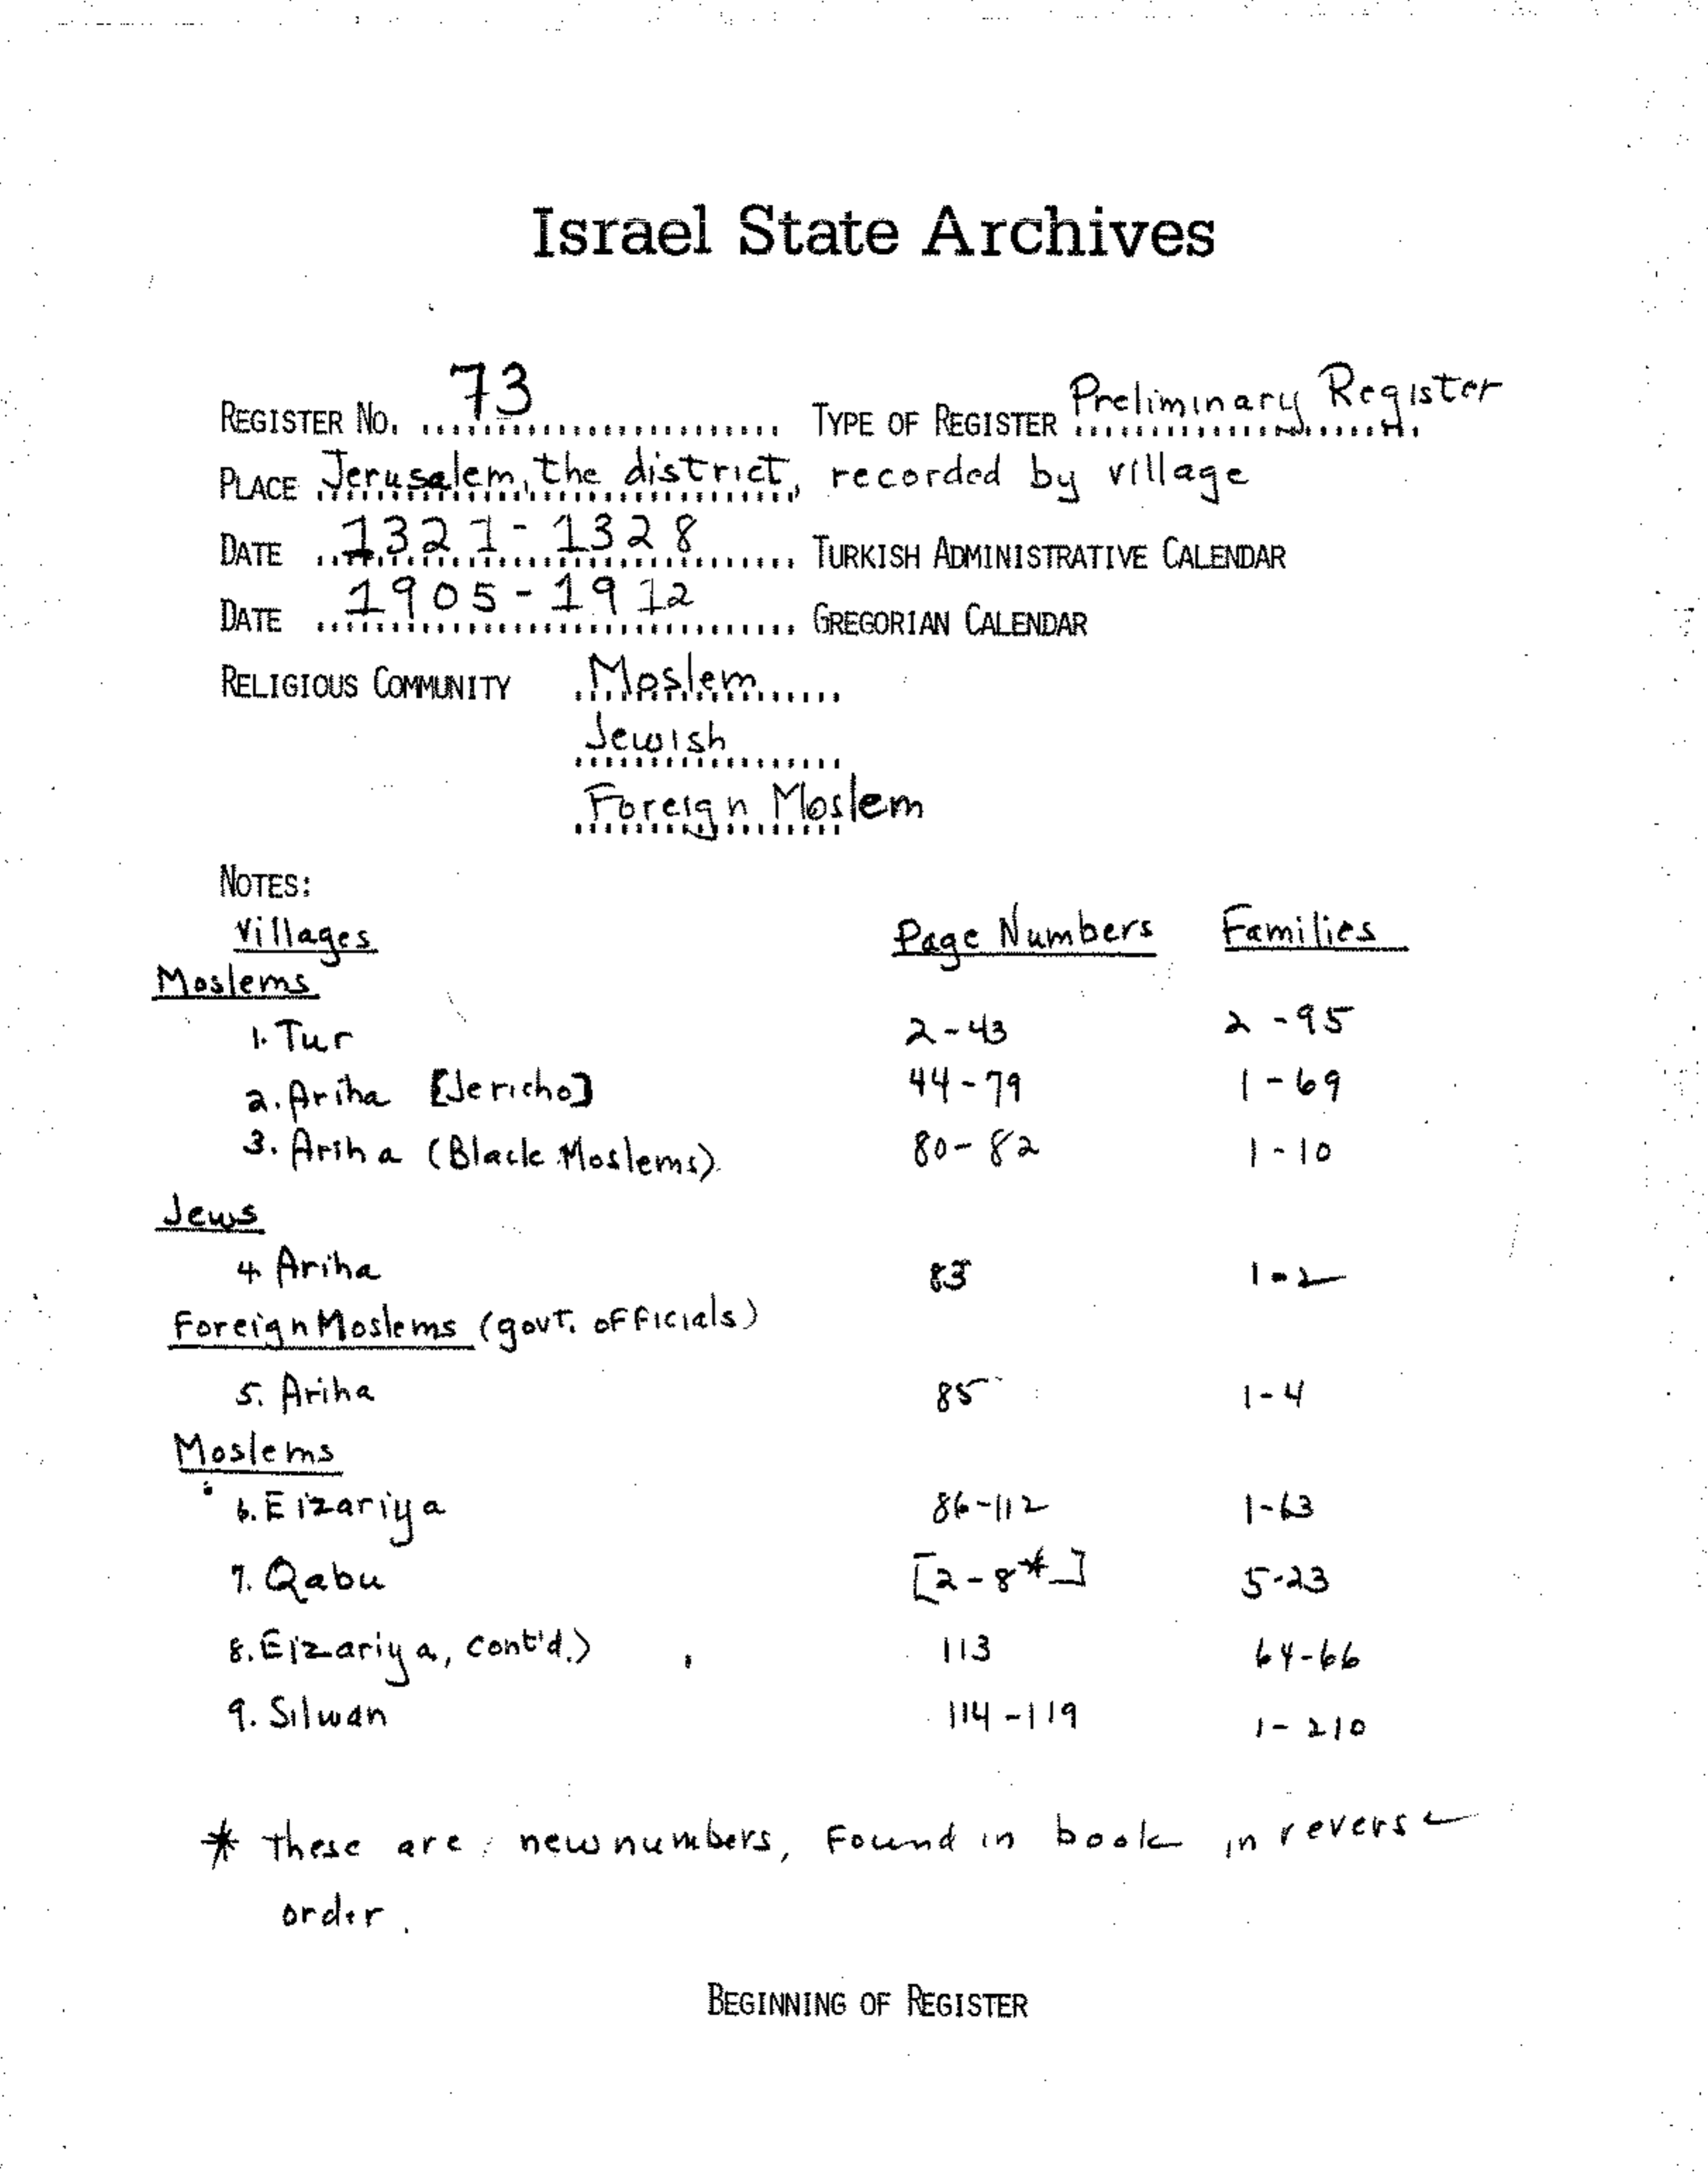 Israel State Archives
REGISTER NO. 73 TYPE OF REGISTER Preliminary Register
PLACE Jerusalem, the district, recorded by village
DATE 1321-1328 TURKISH ADMINISTRATIVE CALENDAR
DATE 1905-1912 GREGORIAN CALENDAR
RELIGIOUS COMMUNITY Moslem
Jewish
Foreign Moslem
NOTES:
Villages Page Numbers Families
Moslems
1. Tur 2-43 2-95
2. Ariha [Jericho] 44-79 1-69
3. Ariha (Black Moslems) 80-82 1-10
Jews
4 Ariha 83 1-2
Foreign Moslems (govt. officials)
5. Ariha 85 1-4
Moslems
6. Eizariya 86-112 1-63
7. Qabu [2-8*] 5-23
8. Eizariya, cont'd.) 113 64-66
9. Silwan 114-119 1-210
* These are new numbers, Found in book in reverse
order.
BEGINNING OF REGISTER